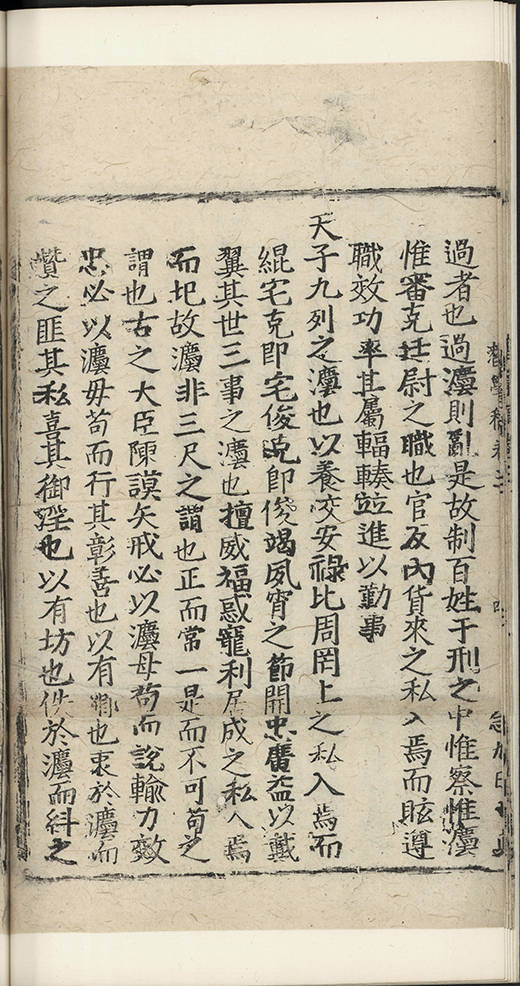 過者也過灋則亂是故制百姓于刑之中惟察惟灋
惟審克廷尉之職也官反內貨來之私入焉而眩遵
職效功率其屬輻輳竝進以勤事
天子九列之灋也以養交安祿比周罔上之私入焉而
緄宅克即宅俊克即俊竭夙宵之節開忠廣益以戴
翼其世三事之灋也擅威福惑寵利居成之私入焉
而圮故灋非三尺之謂也正而常一是而不可苟之
謂也古之大臣陳謨矢戒必以灋毋苟而說輸力效
忠必以灋毋苟而行其彰善也以有也衷於灋而
贊之匪其私喜其御淫也以有坊也佚於灋而糾之